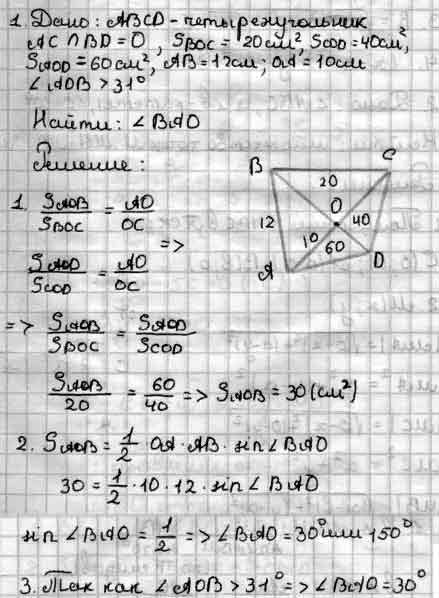 1. Дано: ABCD - четырехугольник
AC ∩ BD = O, S_BOC = 20 см², S_COD = 40 см²,
S_AOD = 60 см², AB = 12 см; OA = 10 см
∠AOB > 31°
Найти: ∠BAO
Решение:
1. S_AOB / S_BOC = AO / OC
=>
S_AOD / S_COD = AO / OC
=> S_AOB / S_BOC = S_AOD / S_COD
S_AOB / 20 = 60 / 40 => S_AOB = 30 (см²)
B
C
20
O
12
40
10
60
A
D
2. S_AOB = 1/2 · OA · AB · sin ∠BAO
30 = 1/2 · 10 · 12 · sin ∠BAO
sin ∠BAO = 1/2 => ∠BAO = 30° или 150°
3. Так как ∠AOB > 31° => ∠BAO = 30°